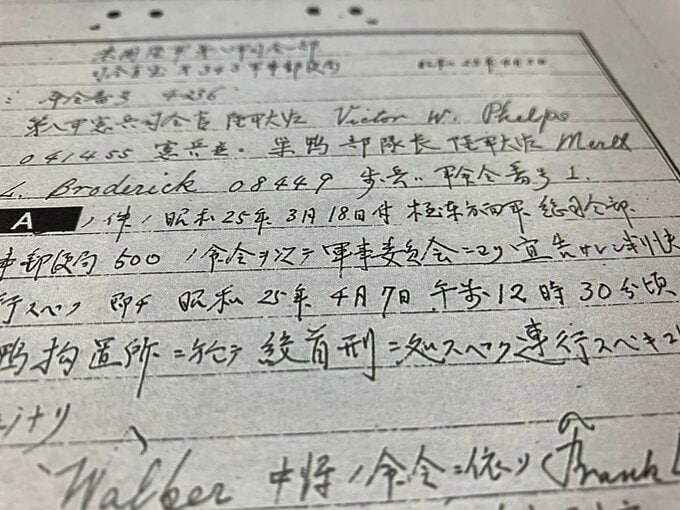 米国陸軍第八軍司令部
司令官室 第343軍事郵便局 昭和25年4月5日
命令番号 4-236
第八軍憲兵司令官 陸軍大佐 Victor W. Phelps
041455 憲兵 巣鴨部隊長 陸軍大佐 Merle
L. Broderick 08449 歩兵 命令番号 1.
A ノ件ノ昭和25年3月18日付極東方面軍総司令部
郵便局 500 ノ命令ヲ次テ軍事委員会ニヨリ宣告サレシ判決
行スベク 即チ 昭和 25年 4月7日 午前12時30分頃
鴨拘置所ニ於テ絞首刑ニ処スベク連行スベキコ
ナリ
Walker 中将ノ命令ニ依リ (Frank